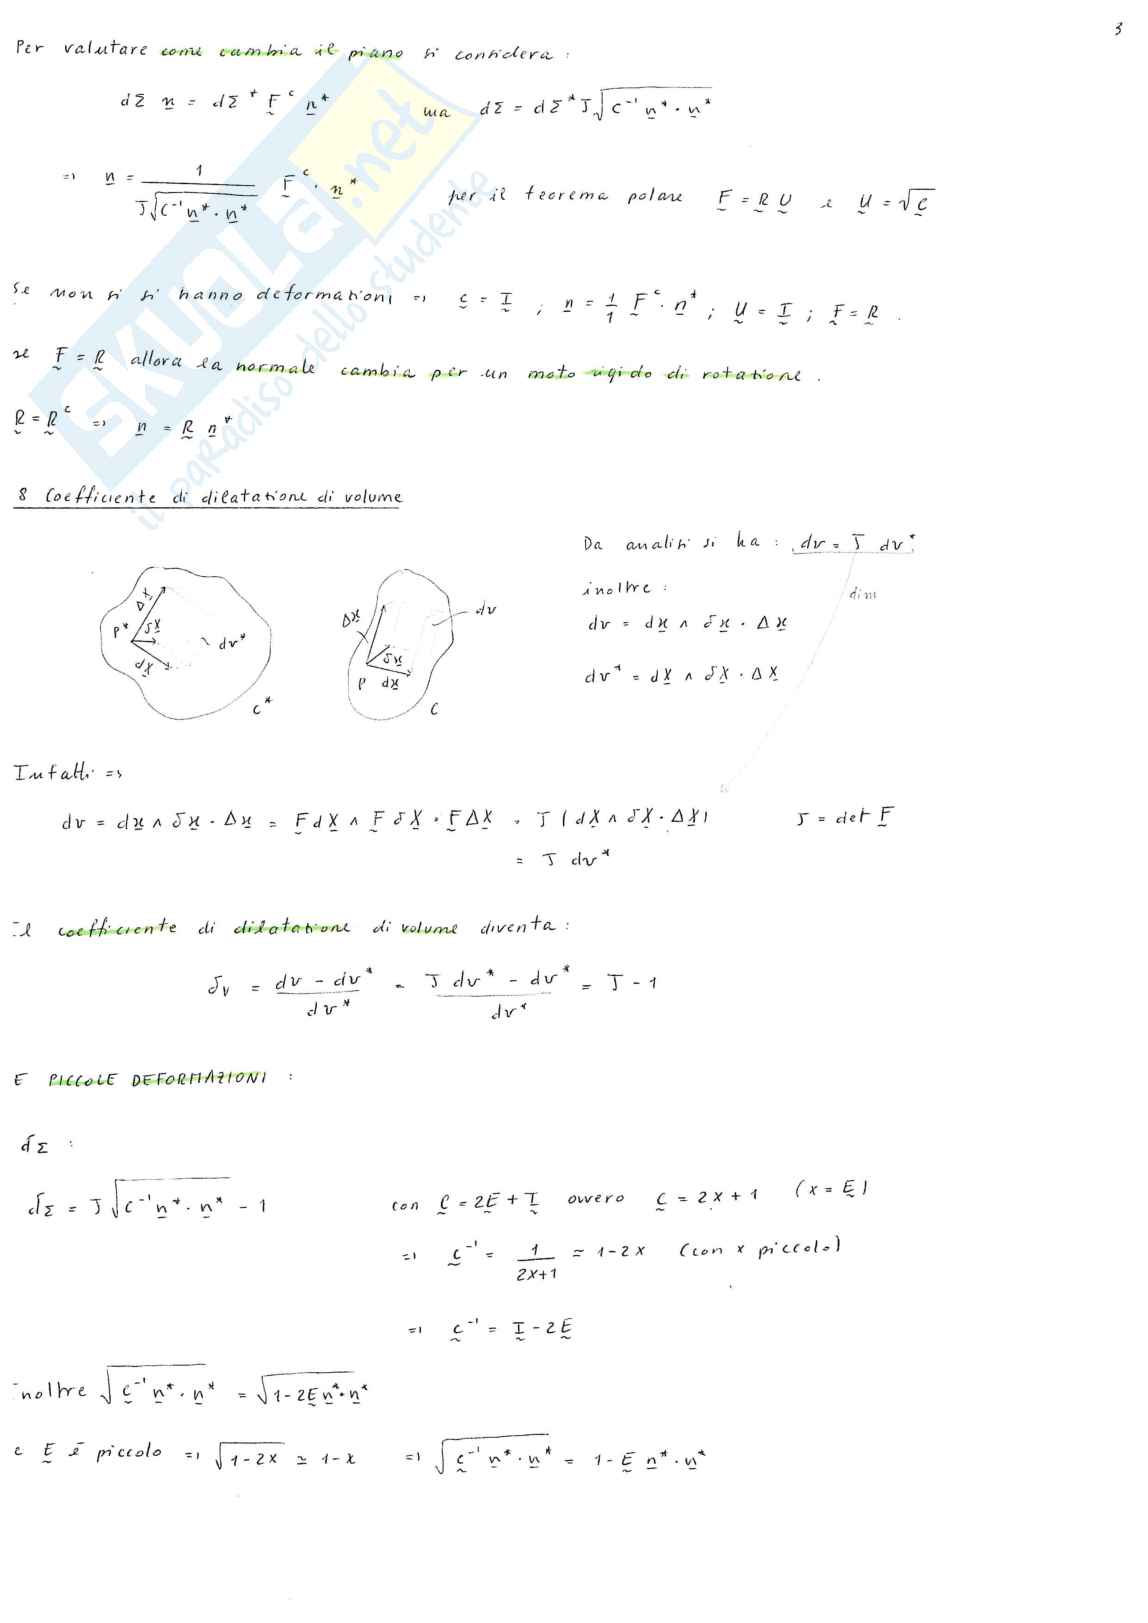 3
Per valutare come cambia il piano si considera :
dΣ n = dΣ* F^c n* ma dΣ = dΣ* J √(C⁻¹ n* · n*)
=> n = 1 / (J √(C⁻¹ n* · n*)) F^c · n* per il teorema polare F = R U e U = √C
Se non si si hanno deformazioni => C = I ; n = 1/1 F^c · n* ; U = I ; F = R .
se F = R allora la normale cambia per un moto rigido di rotazione .
R = R^c => n = R n*
8 Coefficiente di dilatazione di volume
Da analisi si ha : dv = J dv*
dim
inoltre :
dv = dx ∧ δx · Δx
dv* = dX ∧ δX · ΔX
ΔX
P*
δX
dX
dv*
C*
Δx
δx
P dx
dv
C
Infatti =>
dv = dx ∧ δx · Δx = F dX ∧ F δX · F ΔX = J (dX ∧ δX · ΔX) J = det F
= J dv*
Il coefficiente di dilatazione di volume diventa :
δv = (dv - dv*) / dv* = (J dv* - dv*) / dv* = J - 1
E PICCOLE DEFORMAZIONI :
δΣ :
δΣ = J √(C⁻¹ n* · n*) - 1 con C = 2E + I ovvero C = 2x + 1 (x = E)
=> C⁻¹ = 1 / (2x+1) ≃ 1 - 2x (con x piccolo)
=> C⁻¹ = I - 2E
inoltre √(C⁻¹ n* · n*) = √(1 - 2E n* · n*)
e E è piccolo => √(1 - 2x) ≃ 1 - x => √(C⁻¹ n* · n*) = 1 - E n* · n*
SKUOLA.net
il paradiso dello studente